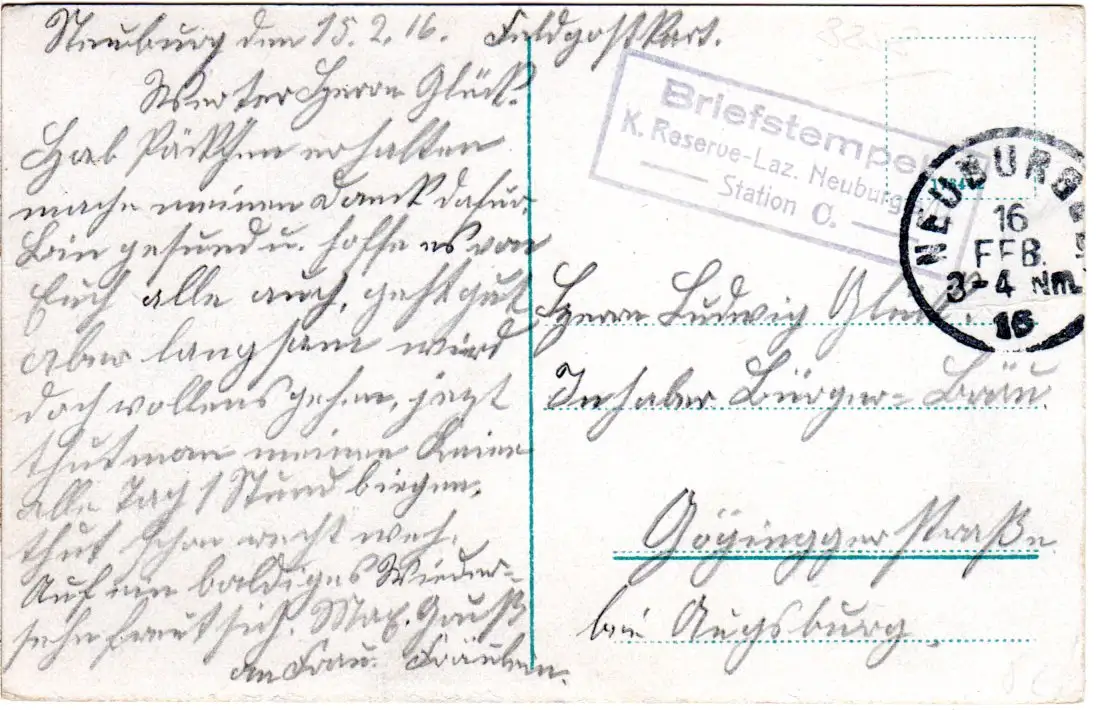 Neuburg den 15.2.16. Feldpostkart.
Werter Herrn Glück.
Hab Päckchen erhalten
mache meinen Danck dafür.
Bin gesund u. hoffe es von
Euch alle auch, geht gut
aber langsam wird
doch vollens gehen, jezt
thut man meinen Knie
alle Tag 1 Stund biegen,
thut schon recht weh.
Auf ein baldiges Wieder-
sehn freut sich. Max. Gauß
an Frau. Fräulein.
Briefstempel
K. Reserve-Laz. Neuburg
Station C.
NEUBURG
16
FEB.
3-4 Nm.
16
Herrn Ludwig Glück.
Inhaber Bürger-Bräu.
Göginggerstraße.
bei Augsburg.